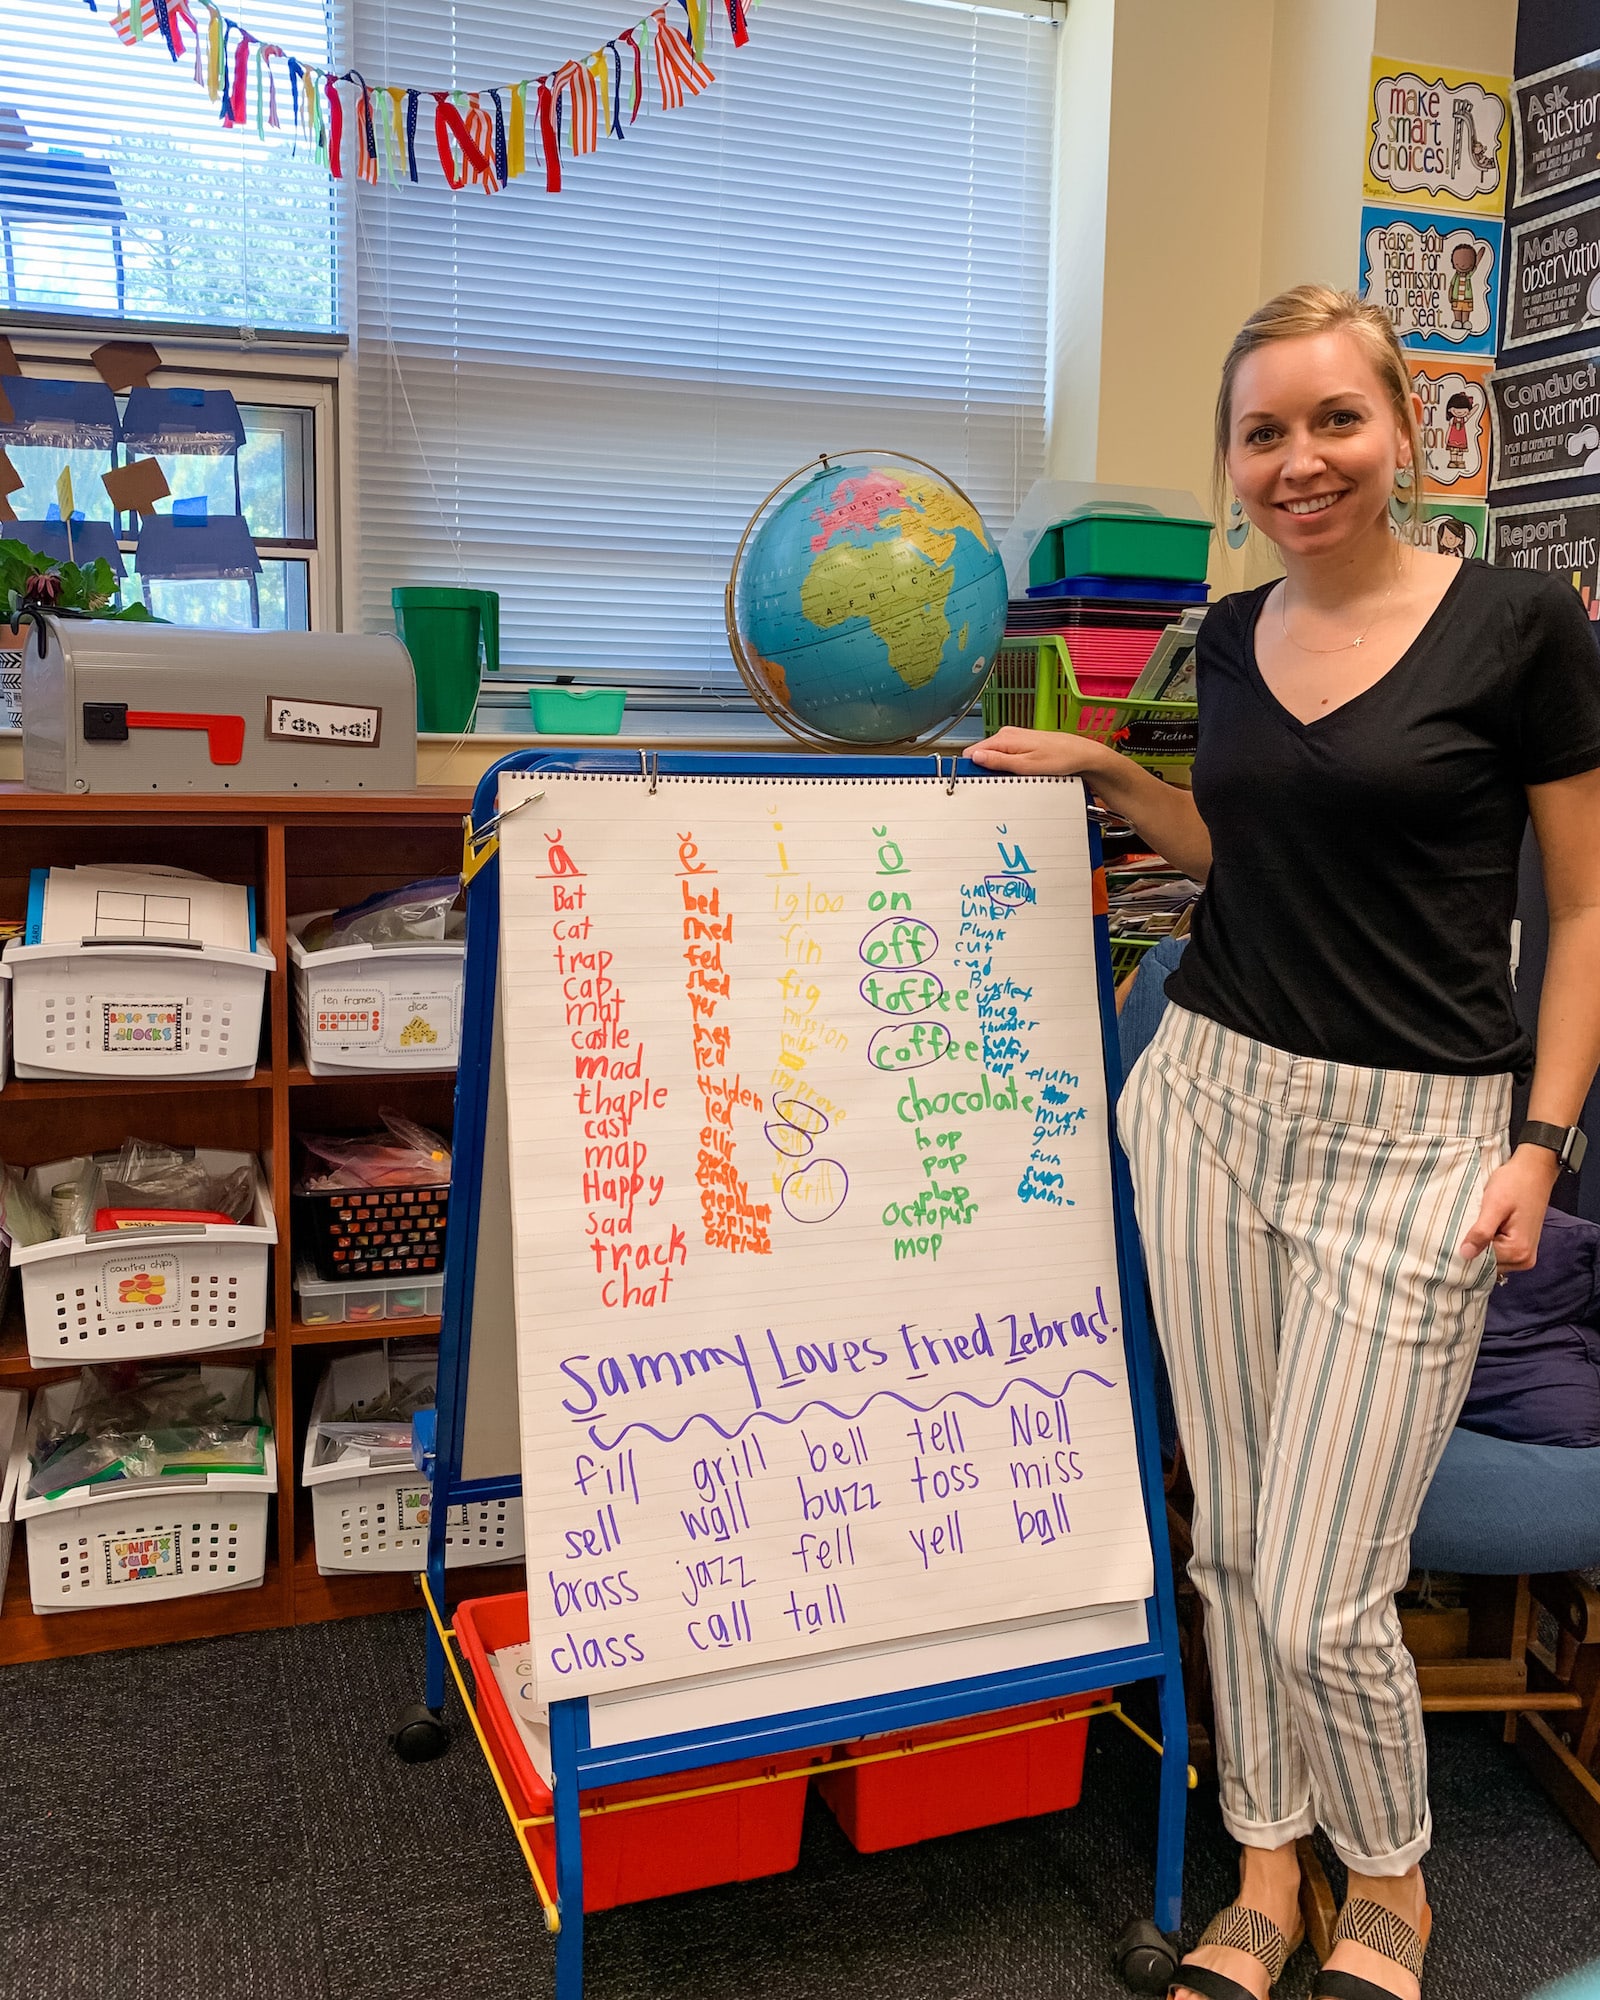 make
smart
choices!
Ask
question
Raise your
hand for
permission
to leave
your seat.
Make
observatio
Conduct
an experimen
Report
your results
EUROPE
AFRICA
ATLANTIC
fan mail
Fiction
ten frames
dice
Base Ten
Blocks
counting chips
Unifix
Cubes
ă
Bat
cat
trap
cap
mat
castle
mad
thaple
cast
map
Happy
sad
track
Chat
ĕ
bed
med
fed
shed
yes
net
red
Holden
led
empty
elephant
explode
ĭ
igloo
fin
fig
mission
mix
improve
drill
ŏ
on
off
toffee
coffee
chocolate
hop
pop
plop
octopus
mop
ŭ
umbrella
under
plunk
cut
cud
Bucket
up
mug
thunder
sun
puppy
cup
plum
murk
guts
fun
sum
gum
Sammy Loves Fried Zebras!
fill grill bell tell Nell
sell wall buzz toss miss
brass jazz fell yell ball
class call tall